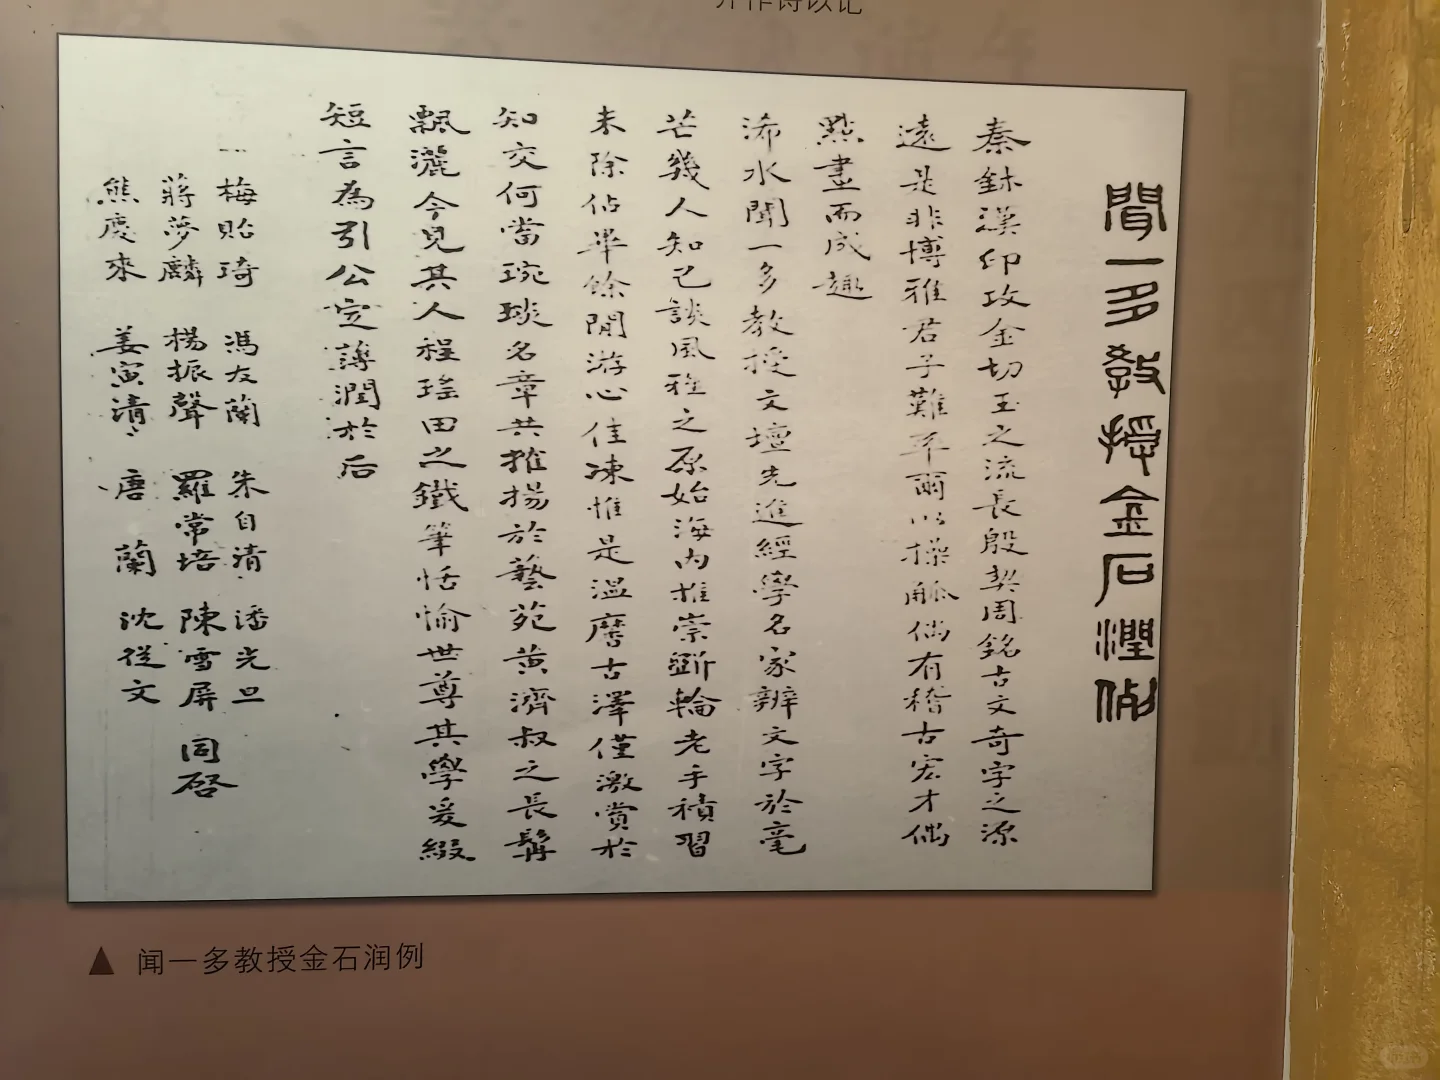 并作诗以记
聞一多教授金石潤例
秦鉢漢印攻金切玉之流長殷契周銘古文奇字之源
遠是非博雅君子難率爾以操觚倘有稽古宏才偶
點畫而成趣
浠水聞一多教授文壇先進經學名家辨文字於毫
芒幾人知己談風雅之原始海內推崇斵輪老手積習
未除佔畢餘閒游心佳凍惟是溫麐古澤僅激賞於
知交何當琬琰名章共推揚於藝苑黃濟叔之長髯
飄灑今見其人程瑤田之鐵筆恬愉世尊其學爰綴
短言為引公定薄潤於后
梅貽琦 馮友蘭 朱自清 潘光旦
蔣夢麟 楊振聲 羅常培 陳雪屏 同啓
熊慶來 姜寅清 唐蘭 沈從文
▲ 闻一多教授金石润例